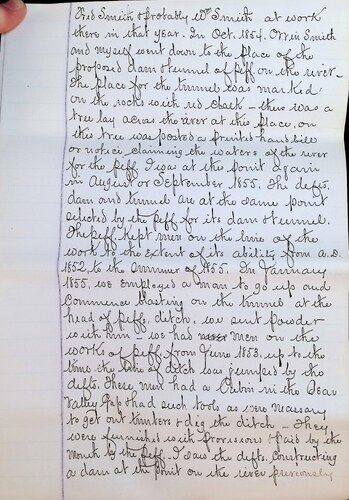 Orrd Smith & probably Wm Smith at work
there in that year. In Oct. 1854. Orrin Smith
and myself went down to the place of the
proposed dam & tunnel of plff on the river.
The place for the tunnel was marked
on the rocks with red chalk - there was a
tree lay across the river at the place, on
this tree was posted a printed handbill
or notice claiming the waters of the river
for the plff. I was at the point again
in August or September 1855. The defts.
dam and tunnel are at the same point
selected by the plff for its dam & tunnel.
The plff kept men on the line of the
work to the extent of its ability from A.D.
1852 to the summer of 1855. In January
1855, we employed a man to go up and
commence blasting on the tunnel at the
head of plffs. ditch. we sent powder
with him - we had men on the
works of plff from June 1853. up to the
time the line of ditch was jumped by the
defts. These men had a Cabin in the Bear
Valley Gap & had such tools as were necessary
to get out timbers & dig the ditch - They
were furnished with provisions & paid by the
month by the plff. I saw the defts. constructing
a dam at the point on the river previously